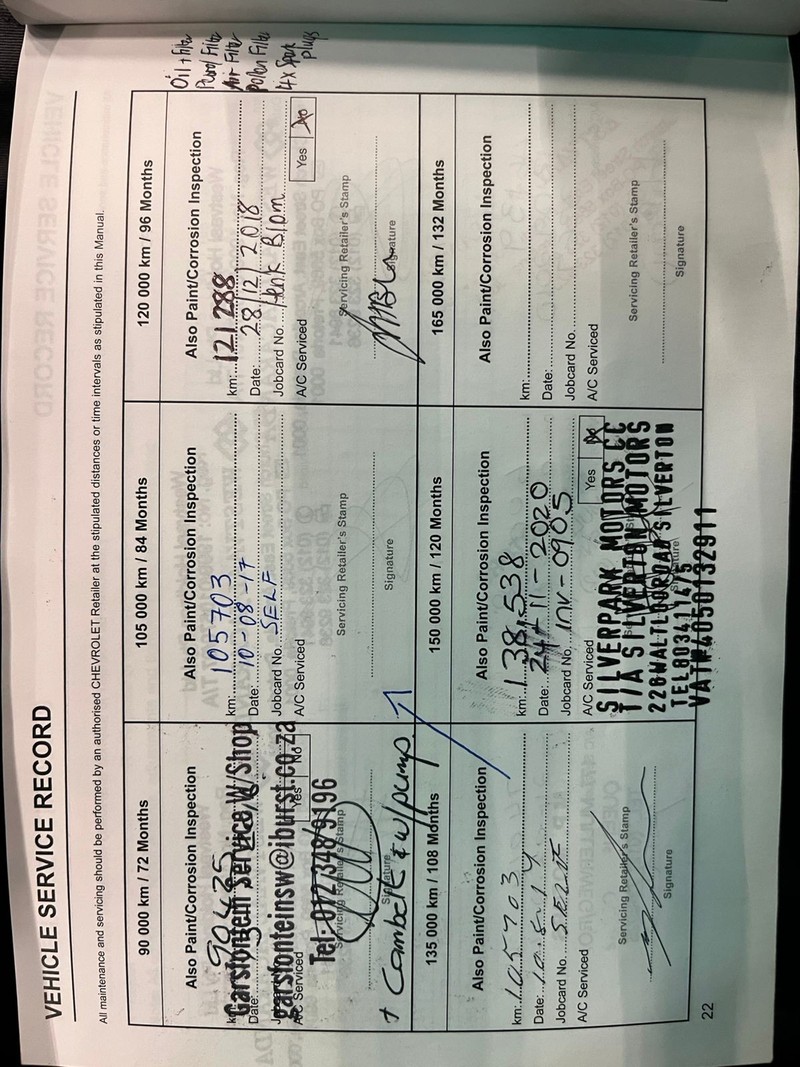 VEHICLE SERVICE RECORD
All maintenance and servicing should be performed by an authorised CHEVROLET Retailer at the stipulated distances or time intervals as stipulated in this Manual.
90 000 km / 72 Months
Also Paint/Corrosion Inspection
km: 90435
Garstontein Service W/Shop
Date:
garstonteinsw@iburst.co.za
A/C Serviced
Yes No
Tel: 012 348 9196
Servicing Retailer's Stamp
Signature
+ Cambelt & w/pump
105 000 km / 84 Months
Also Paint/Corrosion Inspection
km: 105703
Date: 10-08-17
Jobcard No. SELF
A/C Serviced
Servicing Retailer's Stamp
Signature
120 000 km / 96 Months
Also Paint/Corrosion Inspection
km: 121 288
Date: 28/12/2018
Jobcard No. Henk Blom
A/C Serviced
Yes No
Servicing Retailer's Stamp
Signature
Oil + Filter
Air Filter
Pollen Filter
4x Spark
plugs
135 000 km / 108 Months
Also Paint/Corrosion Inspection
km: 105703
Date:
Jobcard No. SELF
A/C Serviced
Servicing Retailer's Stamp
Signature
150 000 km / 120 Months
Also Paint/Corrosion Inspection
km: 138,538
Date: 24-11-2020
Jobcard No. INV-0905
A/C Serviced
Yes No
SILVERPARK MOTORS CC
T/A SILVERTON MOTORS
SILVERTON
Signature
VAT#4050132911
165 000 km / 132 Months
Also Paint/Corrosion Inspection
km:
Date:
Jobcard No.
A/C Serviced
Servicing Retailer's Stamp
Signature
22